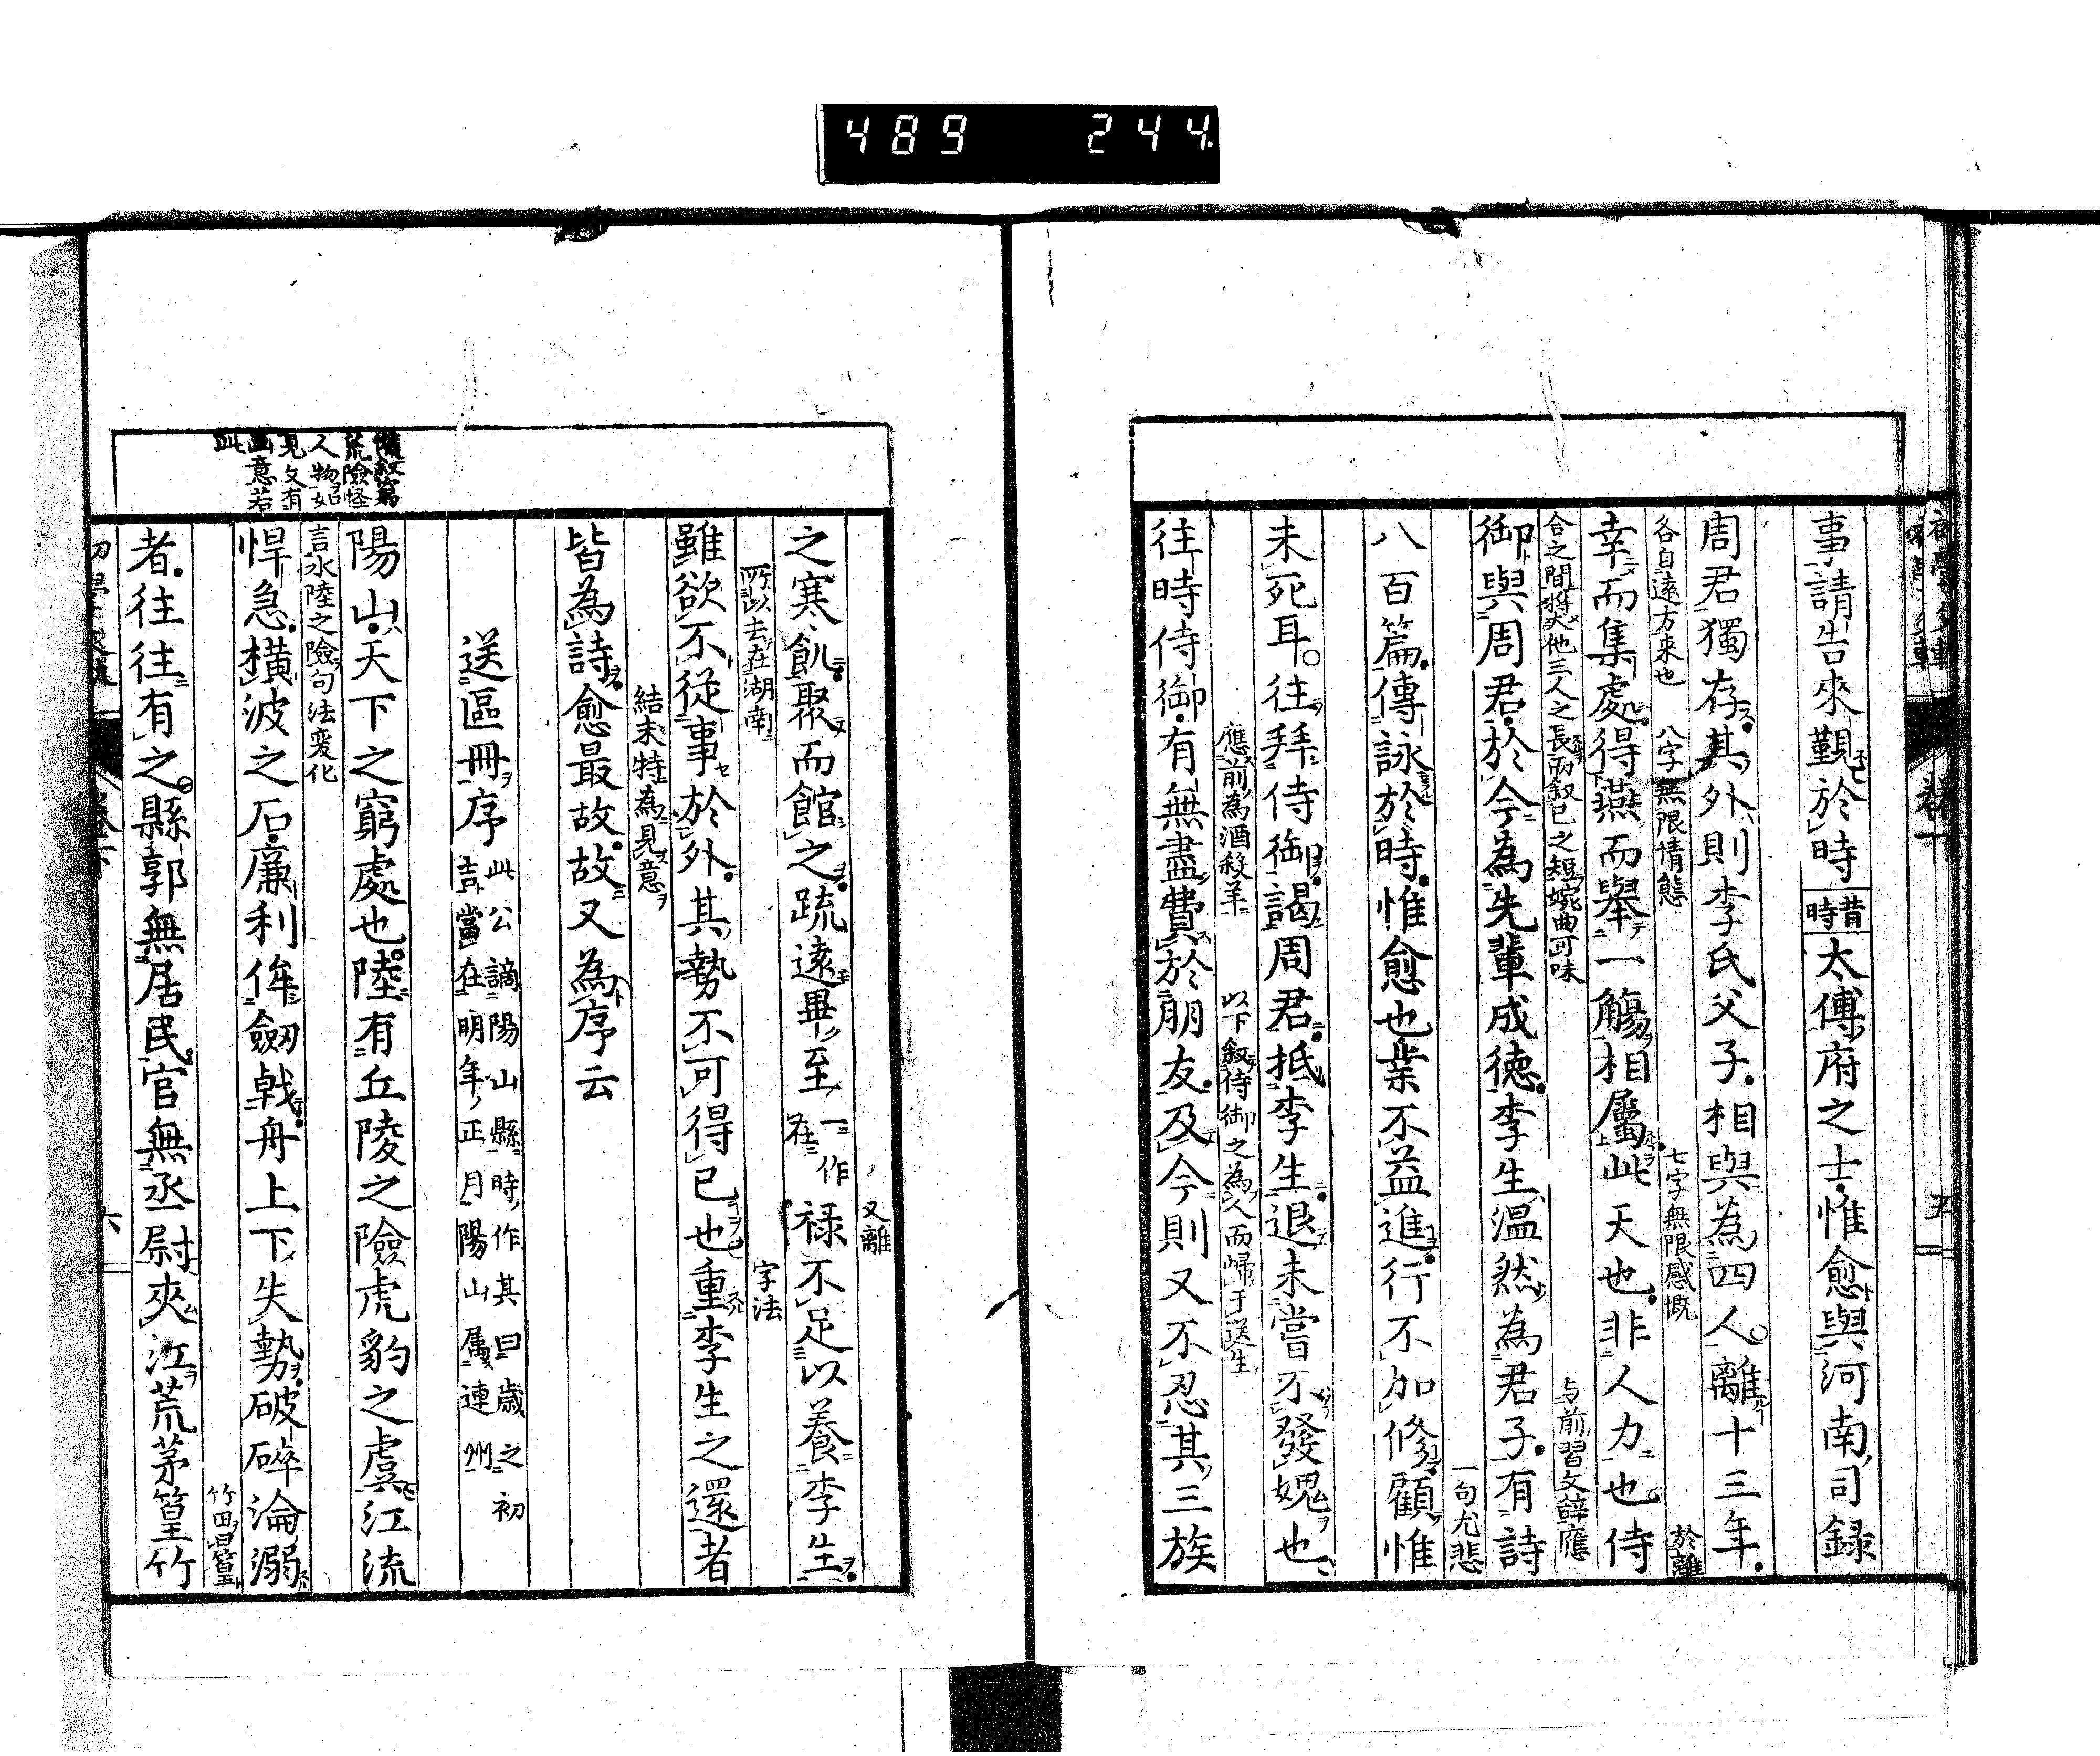 489 244
事請告來覲於時昔時太傅府之士惟愈與河南司録
周君獨存其外則李氏父子相與為四人離十三年
各自遠方来也 八字無限情態 七字無限感慨 於離
幸而集處得燕而舉一觴相屬此天也非人力也侍
合之間將 他三人之長而叙已之短婉曲可味 与前習文辭應
御與周君於今為先輩成徳李生温然為君子有詩
一句尤悲
八百篇傳詠於時惟愈也業不益進行不加修顧惟
未死耳往拜侍御謁周君抵李生退未嘗不發媿也
應前為酒殺羊 以下叙侍御之為人而歸于送生
往時侍御有無盡費於朋友及今則又不忍其三族
五
又離
之寒飢聚而館之疏遠畢至一作在禄不足以養李生
所以去在湖南 字法
雖欲不從事於外其勢不可得已也重李生之還者
結末特為見意
皆為詩愈最故故又為序云
送區冊序此公謫陽山縣時作其曰歲之初
吉當在明年正月陽山属連州
備叙窮
荒險怪
人物如
見文有
畫意若
此
陽山天下之窮處也陸有丘陵之險虎豹之虞江流
言水陸之險句法変化
悍急横波之石廉利侔劒戟舟上下失勢破碎淪溺
竹田曰篁
者往往有之縣郭無居民官無丞尉夾江荒茅篁竹
六